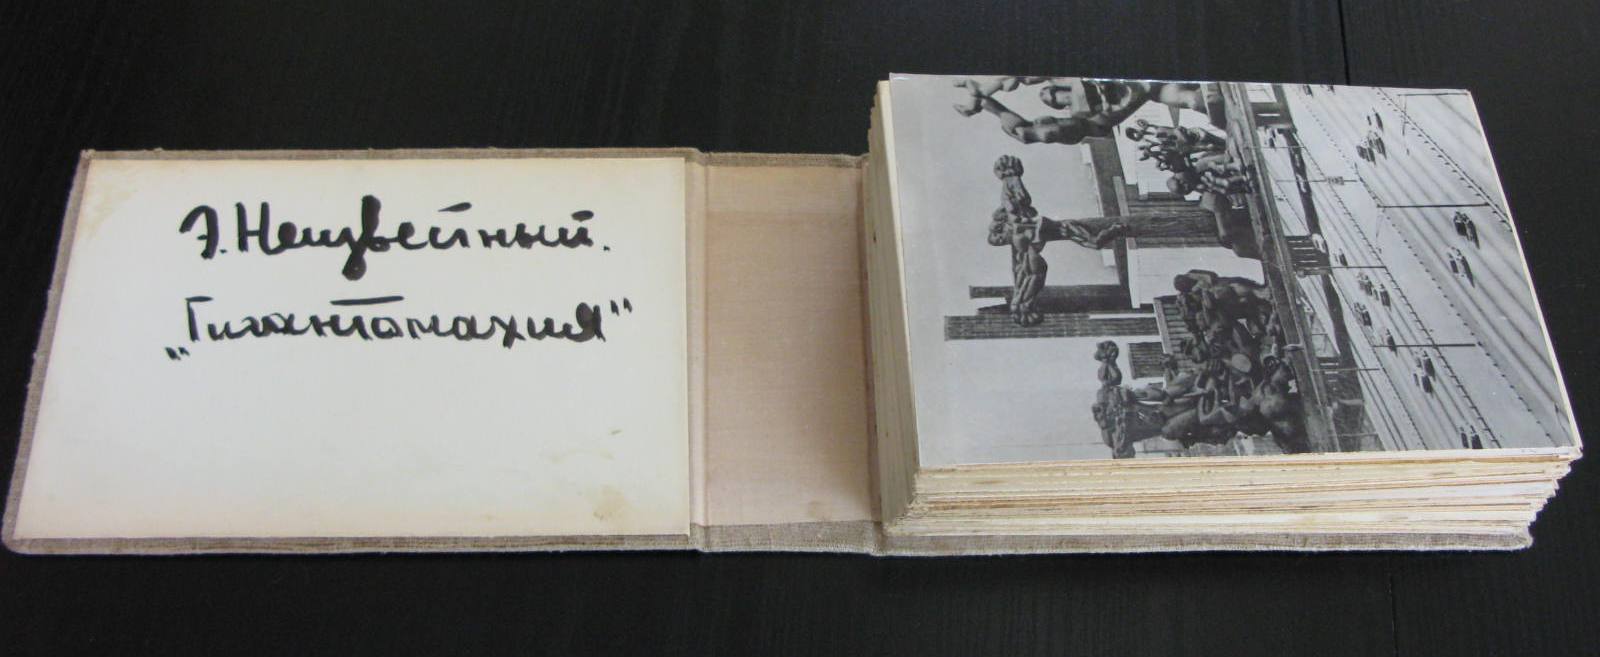 Э. Неизвестный.
„Гигантомахия"